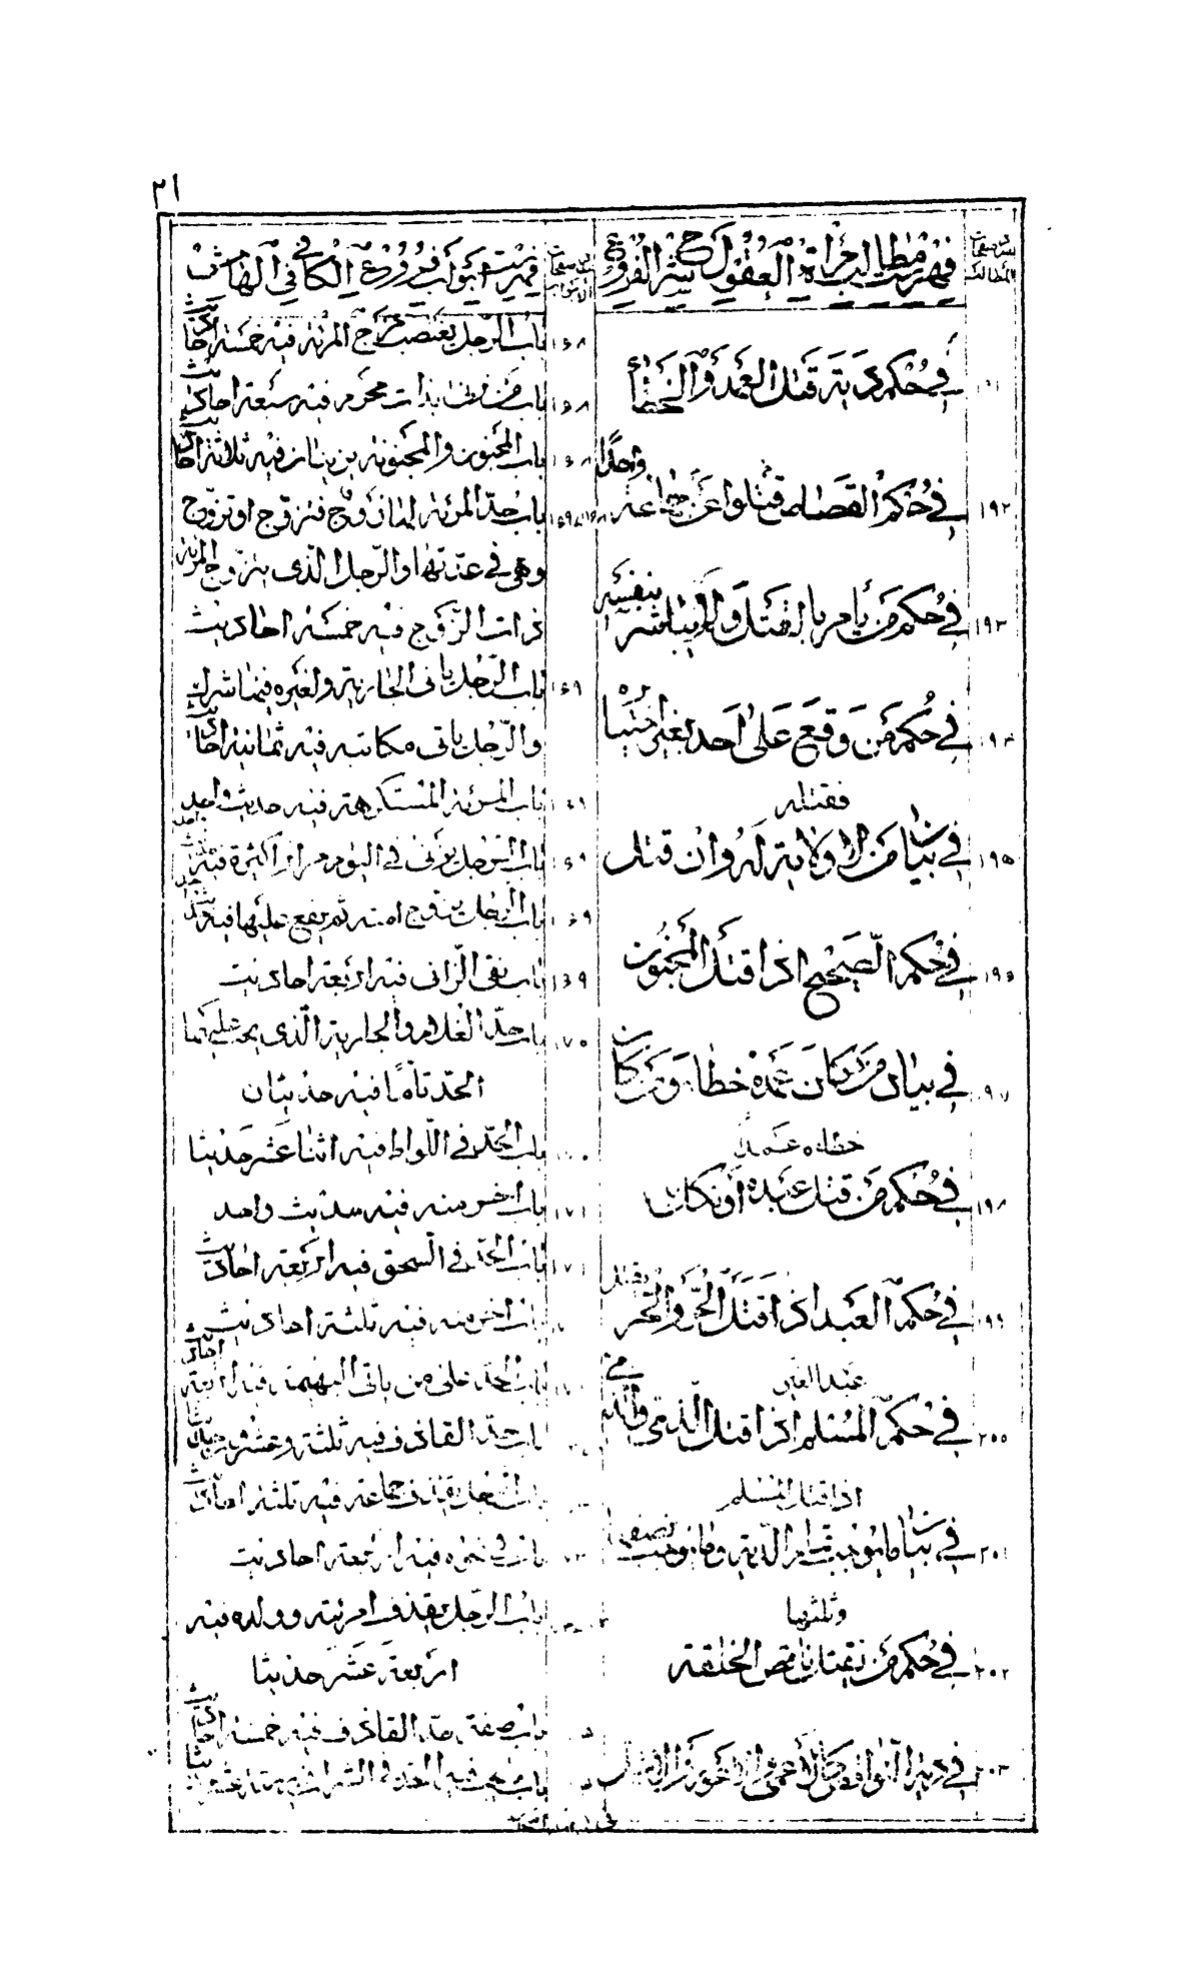 ٣١
نمرة صفحات المطالب
فهرست مطالب مرآة العقول في شرح الفروع
في حكم دية قتل العمد والخطأ
١٩٢ في حكم القصاص قتلوا عن جماعة واحدا
١٩٣ في حكم من يأمر بالقتل ولا يباشر بنفسه
١٩٤ في حكم من وقع على احد بغير اختياره
فقتله
١٩٥ في بيان من لا ولاية له وان قتل
١٩٦ في حكم الصحيح اذا قتل المجنون
١٩٧ في بيان من كان عمده خطاء ومن كان
خطاءه عمدا
١٩٨ في حكم من قتل عبده او نكل
١٩٩ في حكم العبد اذا قتل الحر والحر يقتل
عبد الغير
٢٠٠ في حكم المسلم اذا قتل الذمي والذمي
اذا قتل المسلم
٢٠١ في بيان ما يوجب تمام الدية وما يوجب نصفها
وثلثيها
٢٠٢ في حكم من يقتل ناقص الخلقة
٢٠٣ في دية
نمرة صفحات الابواب
فهرست ابواب فروع الكافي في الهامش
١٦٨ باب الرجل يغتصب فرج المرئة فيه خمسة احاديث
١٦٨ باب من زنا بذات محرم فيه سبعة احاديث
١٦٨ باب المجنون والمجنونة يزنيان فيه ثلاثة احاديث
١٦٨ باب حد المرئة لها زوج فتزوج او تزوج
وهي في عدتها والرجل الذي يتزوج المرئة
ذات الزوج فيه خمسة احاديث
١٦٩ باب الرجل ياتى الجارية ولغيره فيها شرك
والرجل ياتى مكاتبه فيه ثمانية احاديث
١٦٩ باب المرئة المستكرهة فيه حديث واحد
١٦٩ باب الرجل يزنى في اليوم مرارا كثيرة فيه حديث واحد
١٦٩ باب الرجل يزوج امته ثم يقع عليها فيه حديث واحد
١٦٩ باب نفى الزانى فيه اربعة احاديث
١٧٠ باب حد الغلام والجارية الذى يجب عليهما
الحد تاما فيه حديثان
باب الحد في اللواط فيه اثنا عشر حديثا
١٧١ باب اخر منه فيه حديث واحد
١٧١ باب الحد في السحق فيه اربعة احاديث
باب اخر منه فيه ثلثة احاديث
باب الحد على من ياتى البهيمة فيه اربعة احاديث
باب حد القاذف فيه ثلثة وعشرون حديثا
باب الرجل يقذف جماعة فيه ثلثة احاديث
باب في نحوه فيه اربعة احاديث
باب الرجل يقذف امرئته وولده فيه
اربعة عشر حديثا
باب صفة حد القاذف فيه خمسة احاديث
باب ما يجب فيه الحد في الشراب فيه